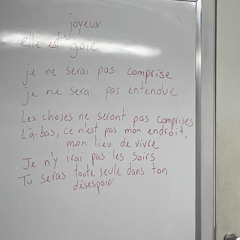 joyeux
elle est gaie
je ne serai pas comprise
je ne serai pas entendue
Les choses ne seront pas comprises
Là-bas, ce n'est pas mon endroit,
mon lieu de vivre
Je n'y irai pas les soirs
Tu seras toute seule dans ton
désespoir